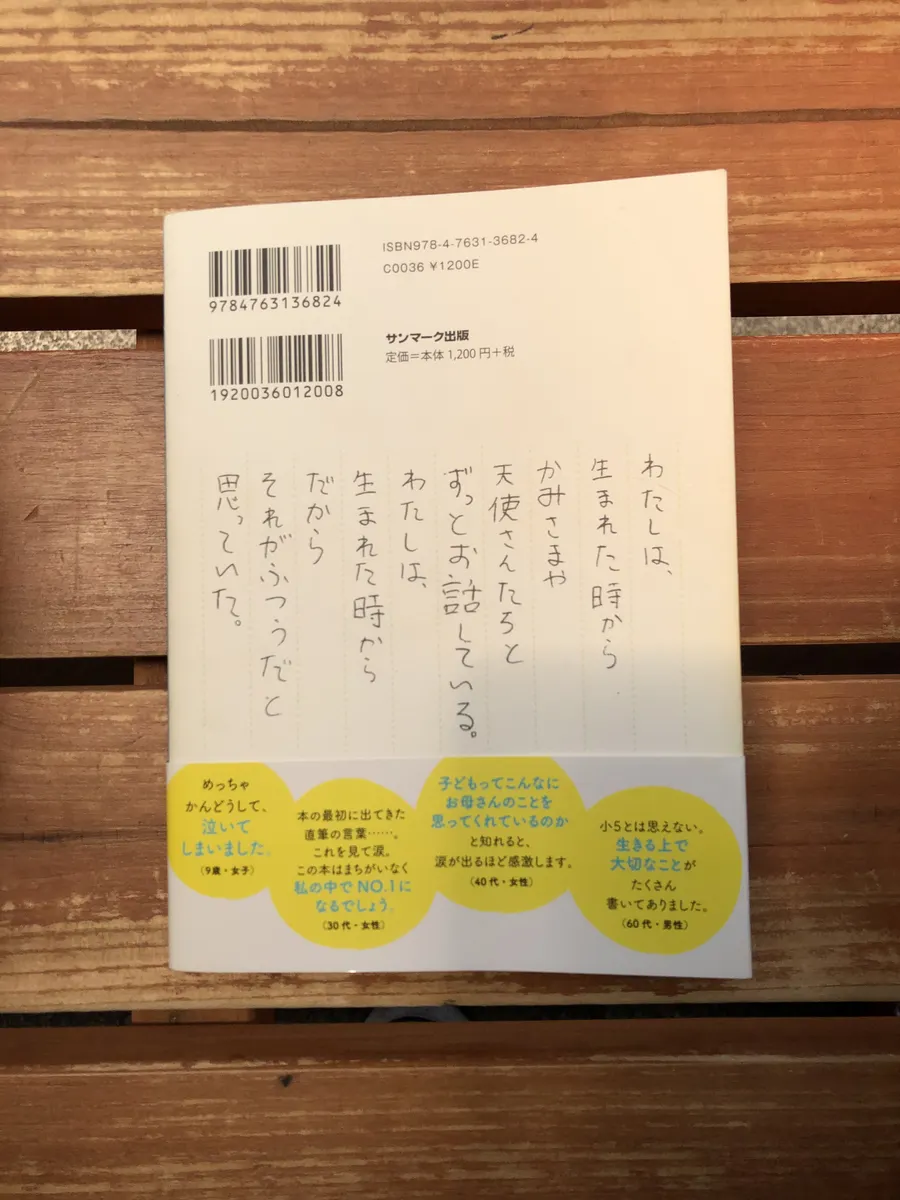 ISBN978-4-7631-3682-4
C0036 ¥1200E
9784763136824
サンマーク出版
定価＝本体1,200円＋税
1920036012008
わたしは、
生まれた時から
かみさまや
天使さんたちと
ずっとお話している。
わたしは、
生まれた時から
だから
それがふつうだと
思っていた。
めっちゃ
かんどうして、
泣いて
しまいました。
（9歳・女子）
本の最初に出てきた
直筆の言葉……。
これを見て涙。
この本はまちがいなく
私の中でNO.1に
なるでしょう。
（30代・女性）
子どもってこんなに
お母さんのことを
思ってくれているのか
と知れると、
涙が出るほど感激します。
（40代・女性）
小5とは思えない。
生きる上で
大切なことが
たくさん
書いてありました。
（60代・男性）